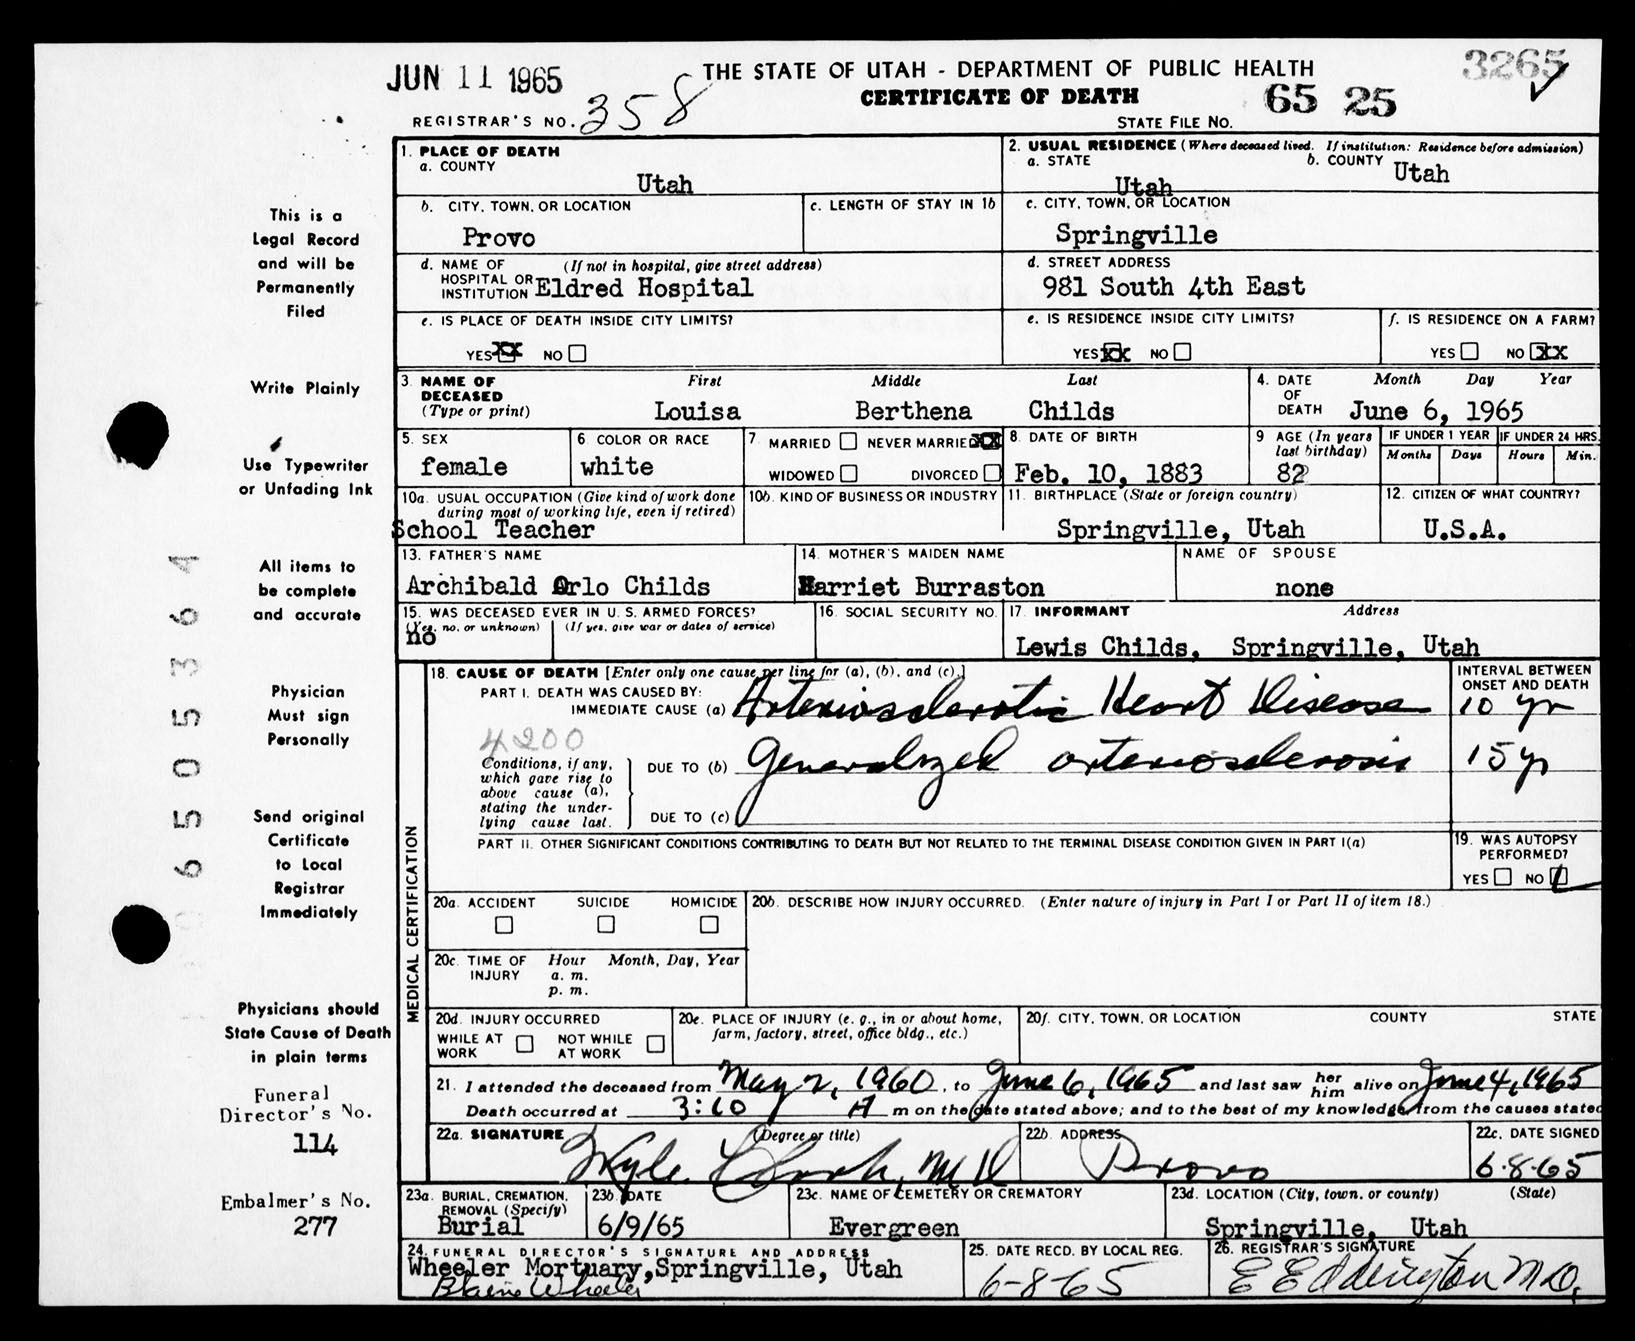 JUN 11 1965
THE STATE OF UTAH - DEPARTMENT OF PUBLIC HEALTH
3265
CERTIFICATE OF DEATH
REGISTRAR'S NO. 358
STATE FILE NO. 65 25
This is a
Legal Record
and will be
Permanently
Filed
Write Plainly
Use Typewriter
or Unfading Ink
All items to
be complete
and accurate
Physician
Must sign
Personally
Send original
Certificate
to Local
Registrar
Immediately
Physicians should
State Cause of Death
in plain terms
Funeral
Director's No.
114
Embalmer's No.
277
650536 4
1. PLACE OF DEATH
a. COUNTY
Utah
2. USUAL RESIDENCE (Where deceased lived. If institution: Residence before admission)
a. STATE
Utah
b. COUNTY
Utah
b. CITY, TOWN, OR LOCATION
Provo
c. LENGTH OF STAY IN 1b
c. CITY, TOWN, OR LOCATION
Springville
d. NAME OF (If not in hospital, give street address)
HOSPITAL OR
INSTITUTION Eldred Hospital
d. STREET ADDRESS
981 South 4th East
e. IS PLACE OF DEATH INSIDE CITY LIMITS?
YES XX NO
e. IS RESIDENCE INSIDE CITY LIMITS?
YES XX NO
f. IS RESIDENCE ON A FARM?
YES NO XX
3. NAME OF DECEASED (Type or print)
First Middle Last
Louisa Berthena Childs
4. DATE OF DEATH
Month Day Year
June 6, 1965
5. SEX
female
6. COLOR OR RACE
white
7. MARRIED NEVER MARRIED XX
WIDOWED DIVORCED
8. DATE OF BIRTH
Feb. 10, 1883
9 AGE (In years last birthday)
82
IF UNDER 1 YEAR
Months Days
IF UNDER 24 HRS.
Hours Min.
10a. USUAL OCCUPATION (Give kind of work done
during most of working life, even if retired)
School Teacher
10b. KIND OF BUSINESS OR INDUSTRY
11. BIRTHPLACE (State or foreign country)
Springville, Utah
12. CITIZEN OF WHAT COUNTRY?
U.S.A.
13. FATHER'S NAME
Archibald Orlo Childs
14. MOTHER'S MAIDEN NAME
Harriet Burraston
NAME OF SPOUSE
none
15. WAS DECEASED EVER IN U. S. ARMED FORCES?
(Yes, no, or unknown) (If yes, give war or dates of service)
no
16. SOCIAL SECURITY NO.
17. INFORMANT Address
Lewis Childs, Springville, Utah
MEDICAL CERTIFICATION
18. CAUSE OF DEATH [Enter only one cause per line for (a), (b), and (c).]
INTERVAL BETWEEN
ONSET AND DEATH
PART I. DEATH WAS CAUSED BY:
IMMEDIATE CAUSE (a) Arteriosclerotic Heart Disease 10 yr
4200
Conditions, if any,
which gave rise to
above cause (a),
stating the under-
lying cause last.
DUE TO (b) Generalized arteriosclerosis 15 yr
DUE TO (c)
PART II. OTHER SIGNIFICANT CONDITIONS CONTRIBUTING TO DEATH BUT NOT RELATED TO THE TERMINAL DISEASE CONDITION GIVEN IN PART I(a)
19. WAS AUTOPSY
PERFORMED?
YES NO
20a. ACCIDENT SUICIDE HOMICIDE
20b. DESCRIBE HOW INJURY OCCURRED. (Enter nature of injury in Part I or Part II of item 18.)
20c. TIME OF INJURY
Hour Month, Day, Year
a. m.
p. m.
20d. INJURY OCCURRED
WHILE AT WORK NOT WHILE AT WORK
20e. PLACE OF INJURY (e. g., in or about home,
farm, factory, street, office bldg., etc.)
20f. CITY, TOWN, OR LOCATION COUNTY STATE
21. I attended the deceased from May 2, 1960, to June 6, 1965 and last saw her him alive on June 4, 1965
Death occurred at 3:10 A m on the date stated above; and to the best of my knowledge from the causes stated
22a. SIGNATURE (Degree or title)
M D
22b. ADDRESS
Provo
22c. DATE SIGNED
6-8-65
23a. BURIAL, CREMATION,
REMOVAL (Specify)
Burial
23b. DATE
6/9/65
23c. NAME OF CEMETERY OR CREMATORY
Evergreen
23d. LOCATION (City, town, or county) (State)
Springville, Utah
24. FUNERAL DIRECTOR'S SIGNATURE AND ADDRESS
Wheeler Mortuary, Springville, Utah
Blaine Wheeler
25. DATE RECD. BY LOCAL REG.
6-8-65
26. REGISTRAR'S SIGNATURE
E E Eddington M.D.